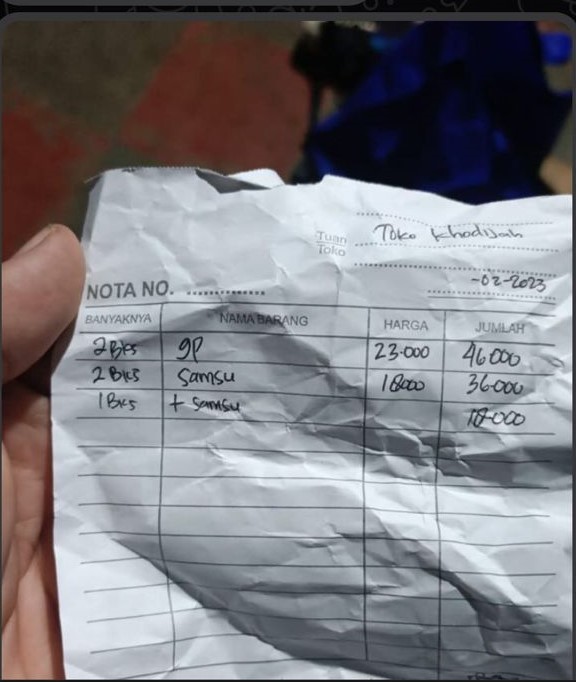 Tuan Toko Toko Khodijah
-02-2023
NOTA NO. ...............
BANYAKNYA NAMA BARANG HARGA JUMLAH
2 Bks GP 23.000 46.000
2 Bks Samsu 18000 36.000
1 Bks + Samsu 18.000